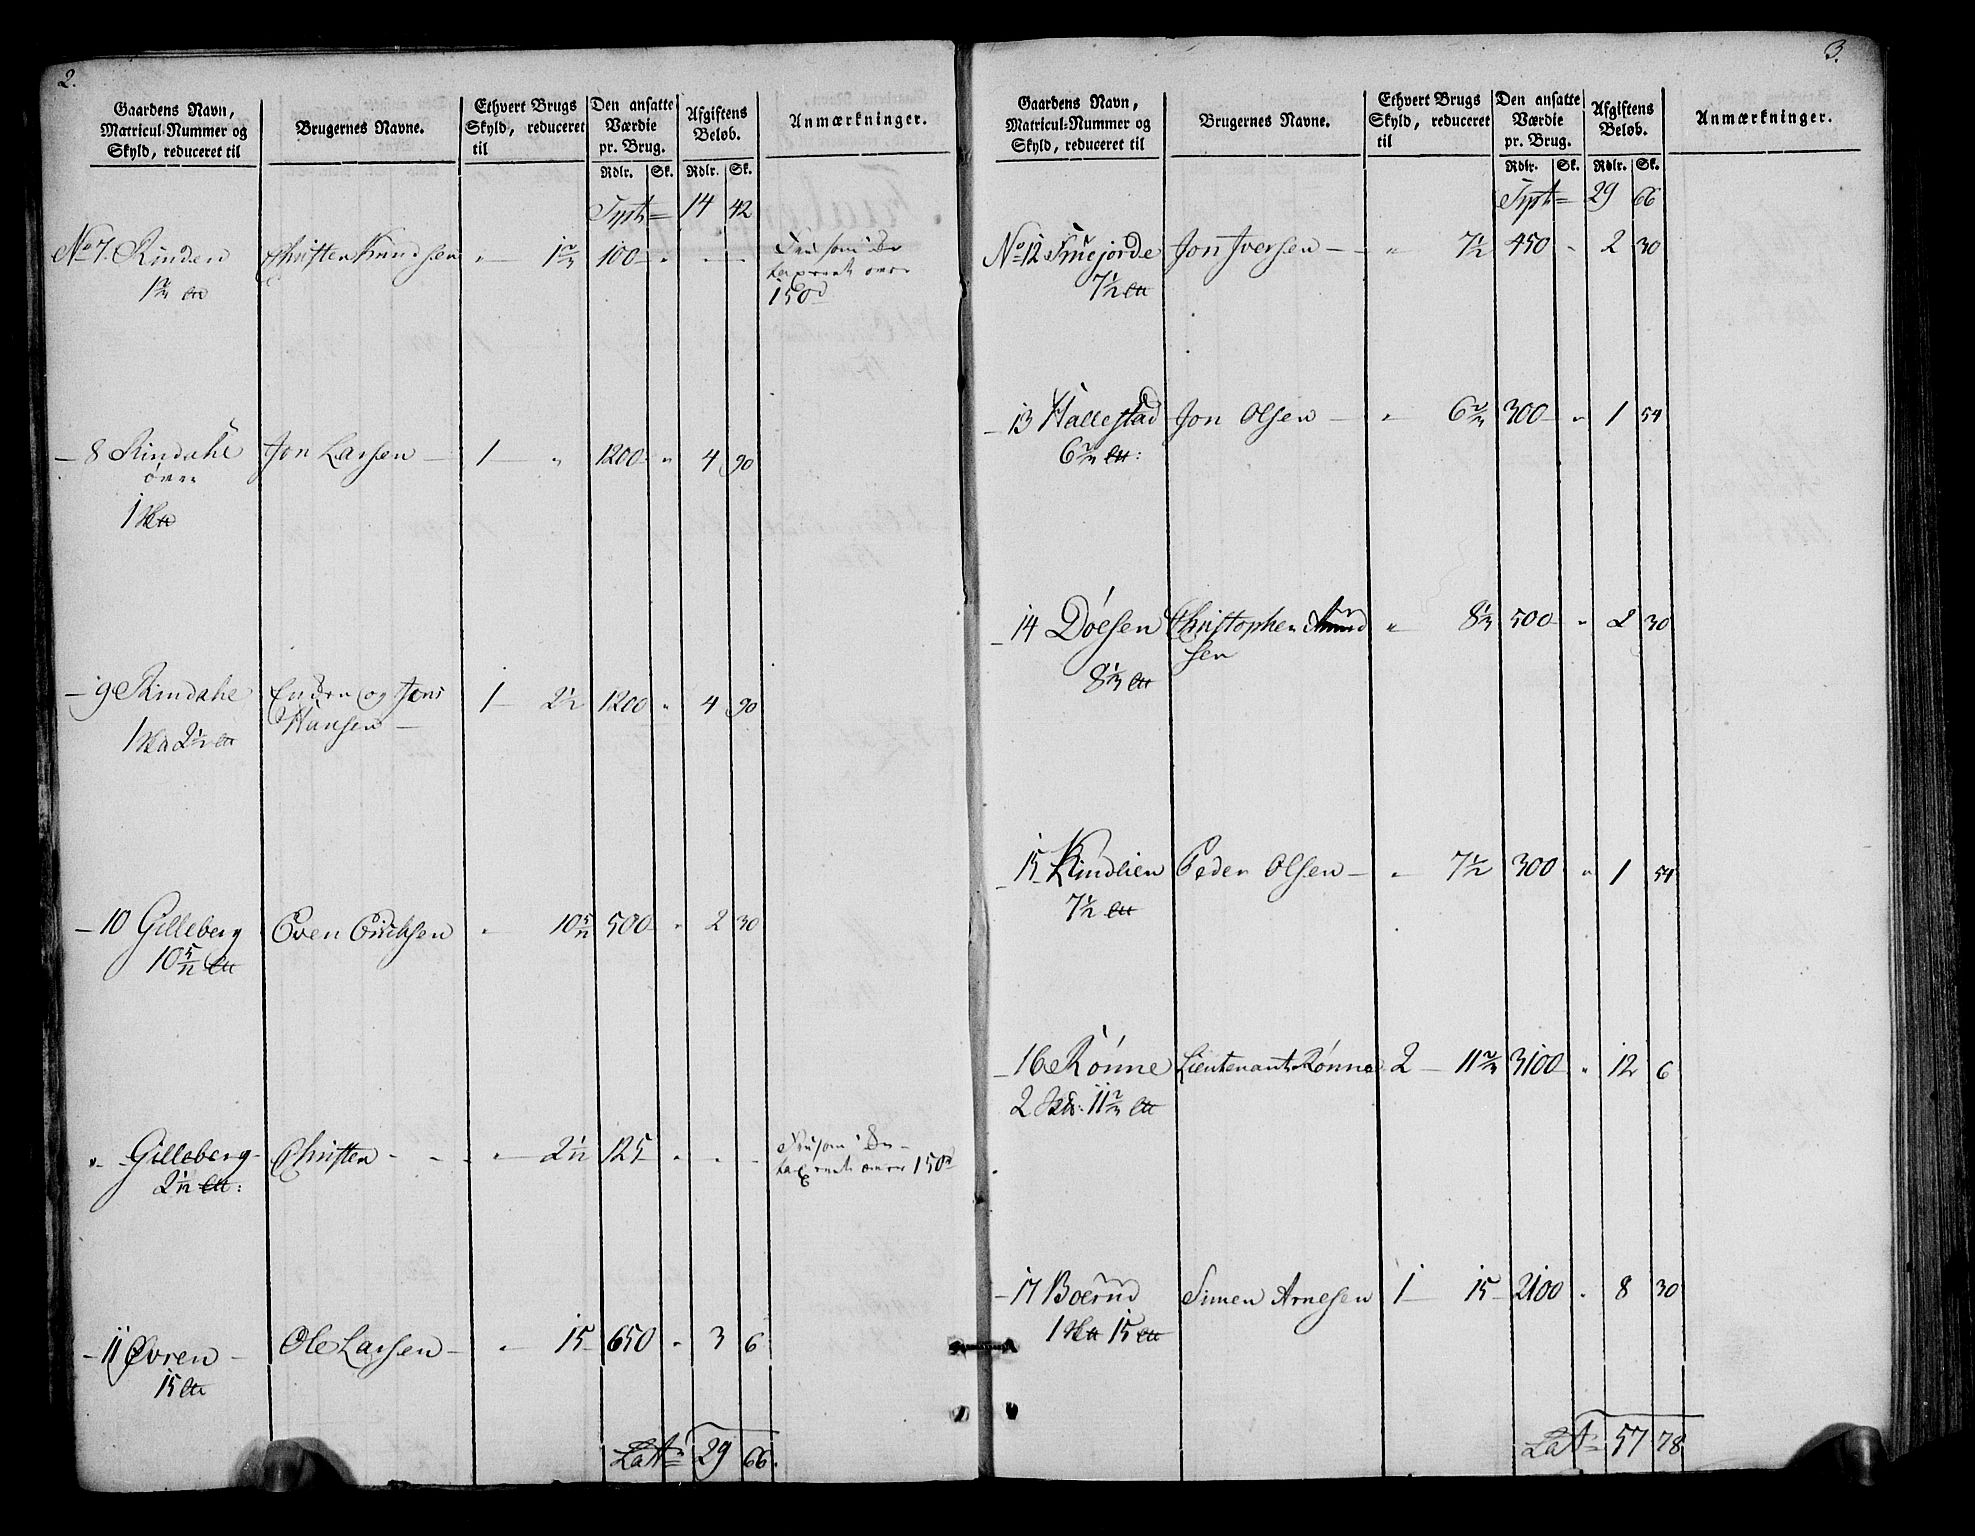 2.
Gaardens Navn, Matricul-Nummer og Skyld, reduceret til | Brugernes Navne. | Ethvert Brugs Skyld, reduceret til | Den ansatte Værdie pr. Brug. | Afgiftens Beløb. | Anmærkninger.
Rdlr. | Sk. | Rdlr. | Sk.
Trpt = 14 42
No 7. Rinden | Christen Knudsen | " — 1 2/3 | 100 — " | — —
1 2/3
150
— 8 Rindahl | Jon Larsen — | 1 — " | 1200 " | 4 90
øvre
1
— 9 Rindahl | Endre og Jens | 1 — 2 1/2 | 1200 " | 4 90
Hansen —
1 2 1/2
— 10 Gilleberg | Even Erichsen | " 10 5/12 | 500 " | 2 30
10 5/12
" — Gilleberg | Christen — | " — 2 1/12 | 125 " | " —
150
2 1/12
— 11 Øvren — | Ole Larsen — | " — 15 | 650 " | 3 6
15
Lat = 29 66.
3.
Gaardens Navn, Matricul-Nummer og Skyld, reduceret til | Brugernes Navne. | Ethvert Brugs Skyld, reduceret til | Den ansatte Værdie pr. Brug. | Afgiftens Beløb. | Anmærkninger.
Rdlr. | Sk. | Rdlr. | Sk.
Trpt = 29 66
No 12 | Jon Iversen — | " 7 1/2 | 450 " | 2 30
7 1/2
— 13 Hallestad | Jon Olsen — | " 6 2/3 | 300 " | 1 54
6 2/3
— 14 Döesen | Christopher | " 8 1/3 | 500 " | 2 30
sen
8 1/3
— 15 Kindlien | Peder Olsen — | " 7 1/2 | 300 " | 1 54
7 1/2
— 16 Rönne | Lieutenant Rönne | 2 — 11 2/3 | 3100 " | 12 6
2 11 2/3
— 17 Boerud | Simen Arnesen | 1 — 15 | 2100 " | 8 30
1 15
Lat = 57 78